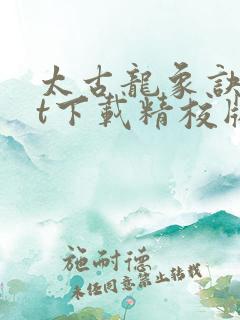 太古龍象訣
t下載精校版
施耐德
未经同意禁止转载